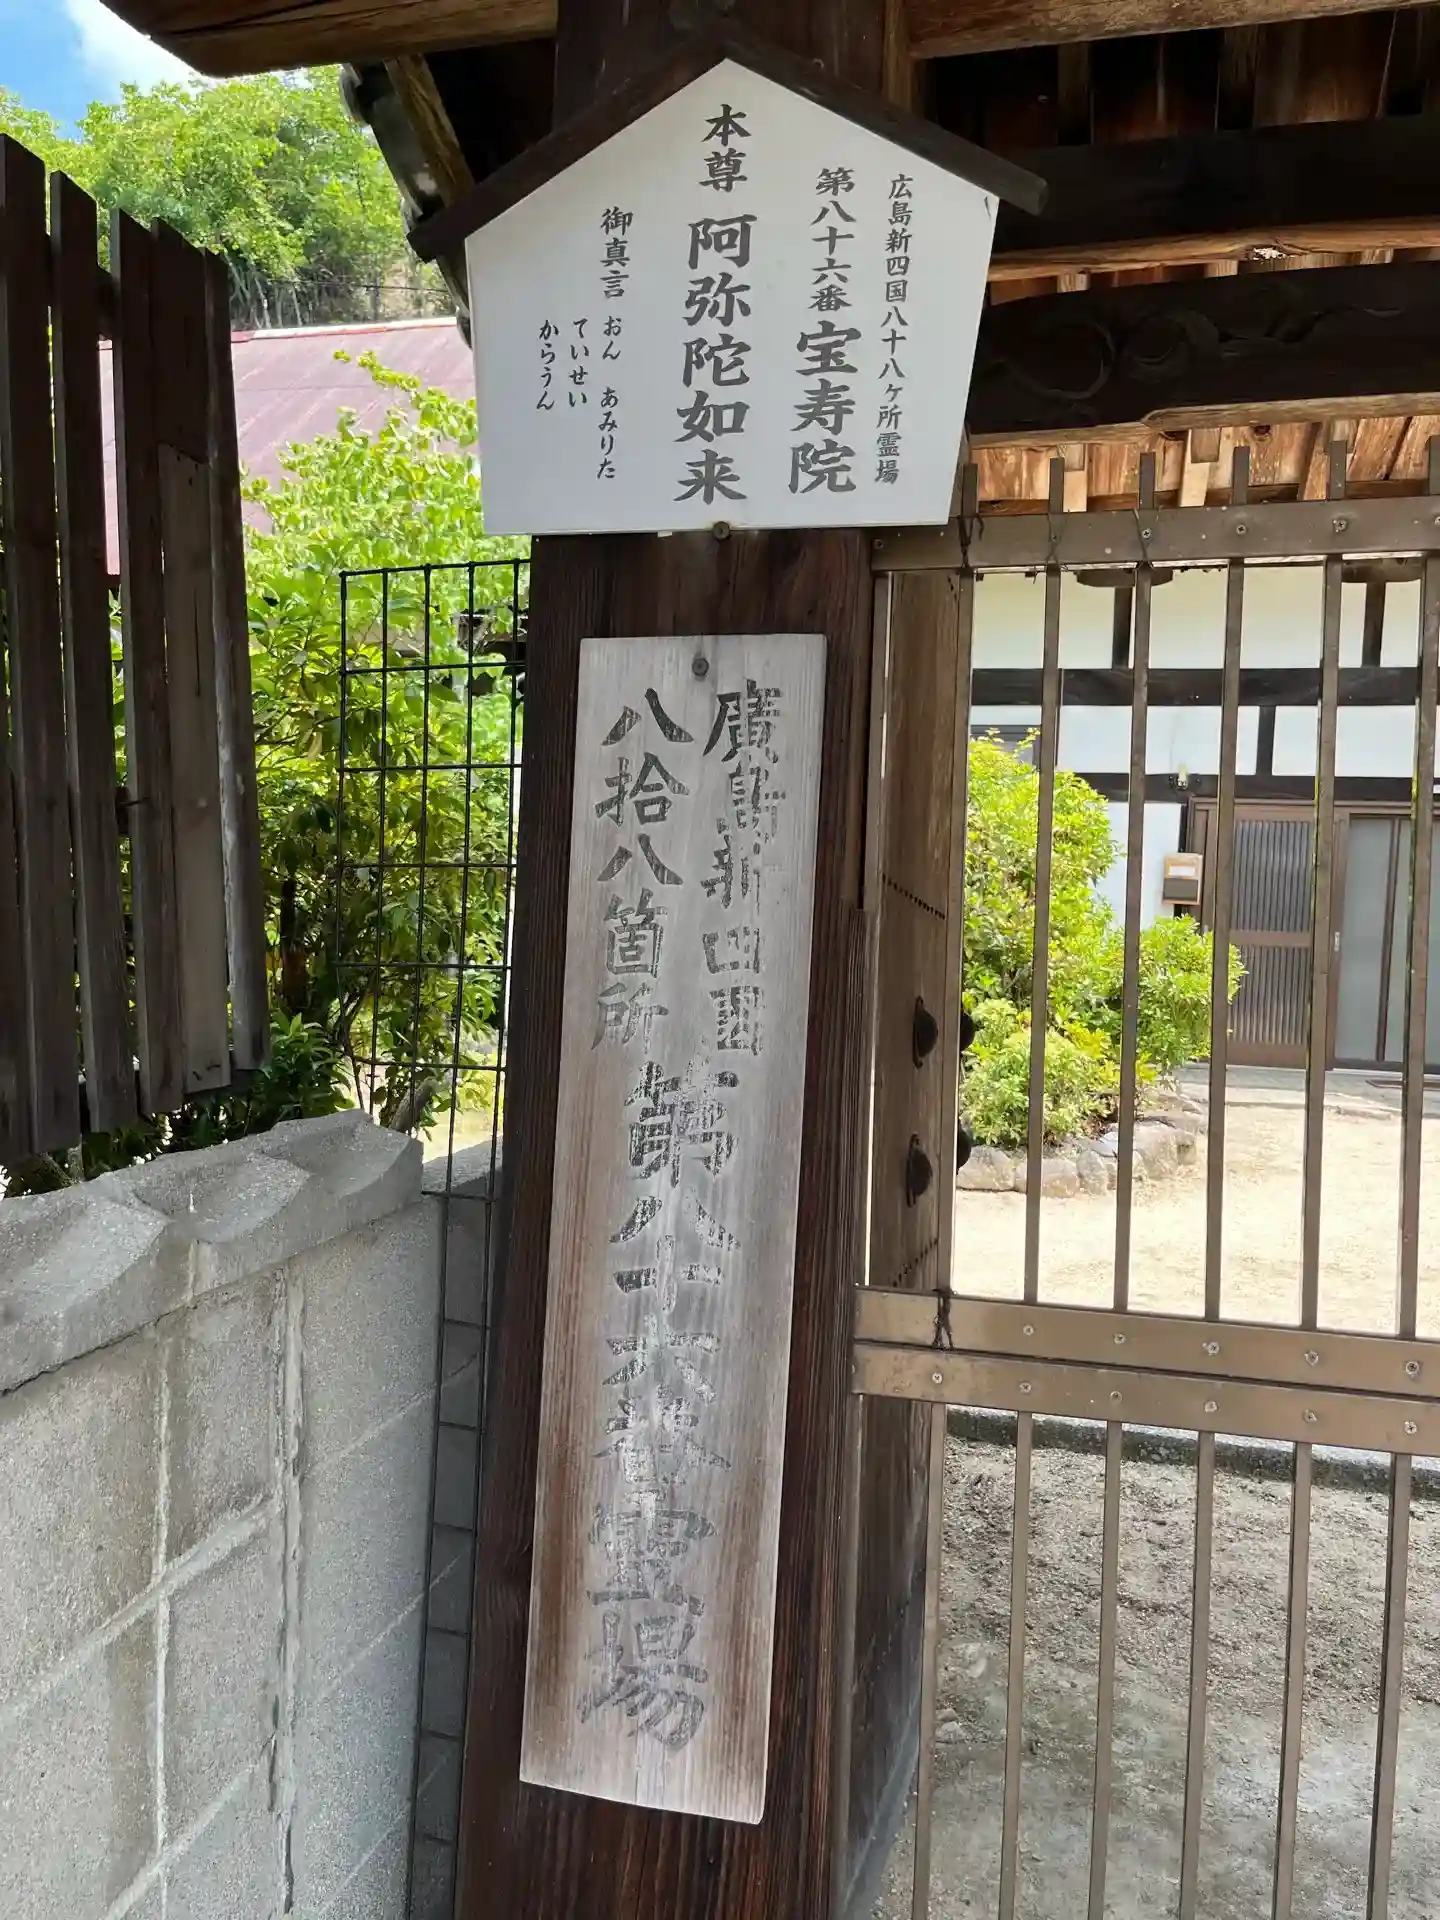 広島新四国八十八ヶ所霊場
第八十六番 宝寿院
本尊 阿弥陀如来
御真言 おん あみりた
ていせい
からうん
廣島新四國
八拾八箇所
第八十六番霊場